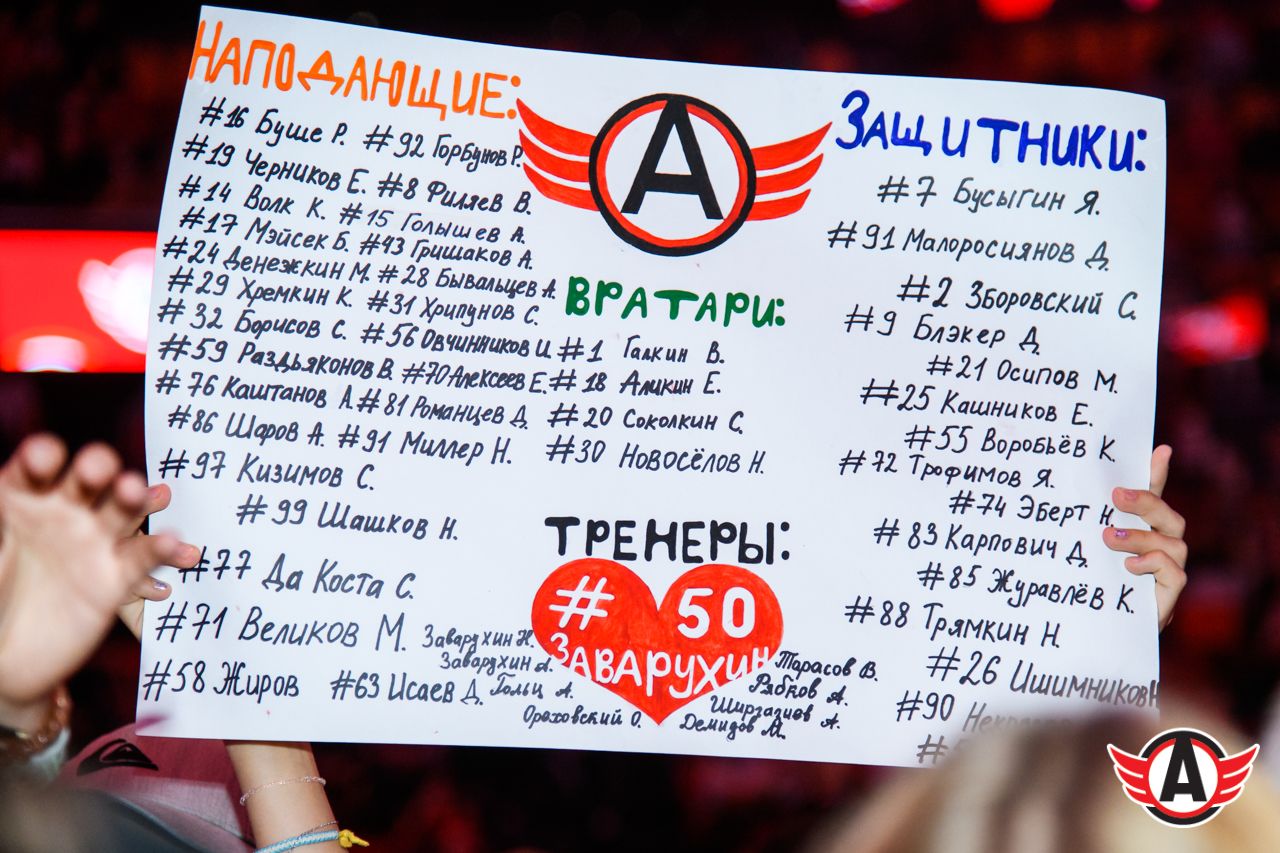 НАПОДАЮЩИЕ:
#16 Буше Р. #92 Горбунов Р.
#19 Черников Е. #8 Филяев В.
#14 Волк К. #15 Голышев А.
#17 Мэйсек Б. #43 Гришаков А.
#24 Денежкин М. #28 Бывальцев А.
#29 Хремкин К. #31 Хрипунов С.
#32 Борисов С. #56 Овчинников И.
#59 Раздьяконов В. #70 Алексеев Е.
#76 Каштанов А. #81 Романцев Д.
#86 Шаров А. #91 Миллер Н.
#97 Кизимов С.
#99 Шашков Н.
#77 Да Коста С.
#71 Великов М.
#58 Жиров #63 Исаев Д.
А
ВРАТАРИ:
#1 Галкин В.
#18 Аликин Е.
#20 Соколкин С.
#30 Новосёлов Н.
ТРЕНЕРЫ:
#50
ЗАВАРУХИН
Заварухин Н.
Заварухин А.
Гольц А.
Ореховский О.
Тарасов В.
Рябков А.
Ширгазиев А.
Демидов М.
ЗАЩИТНИКИ:
#7 Бусыгин Я.
#91 Малоросиянов Д.
#2 Зборовский С.
#9 Блэкер Д.
#21 Осипов М.
#25 Кашников Е.
#55 Воробьёв К.
#72 Трофимов Я.
#74 Эберт Н.
#83 Карпович Д.
#85 Журавлёв К.
#88 Трямкин Н.
#26 Ишимников Н
#90
#
А